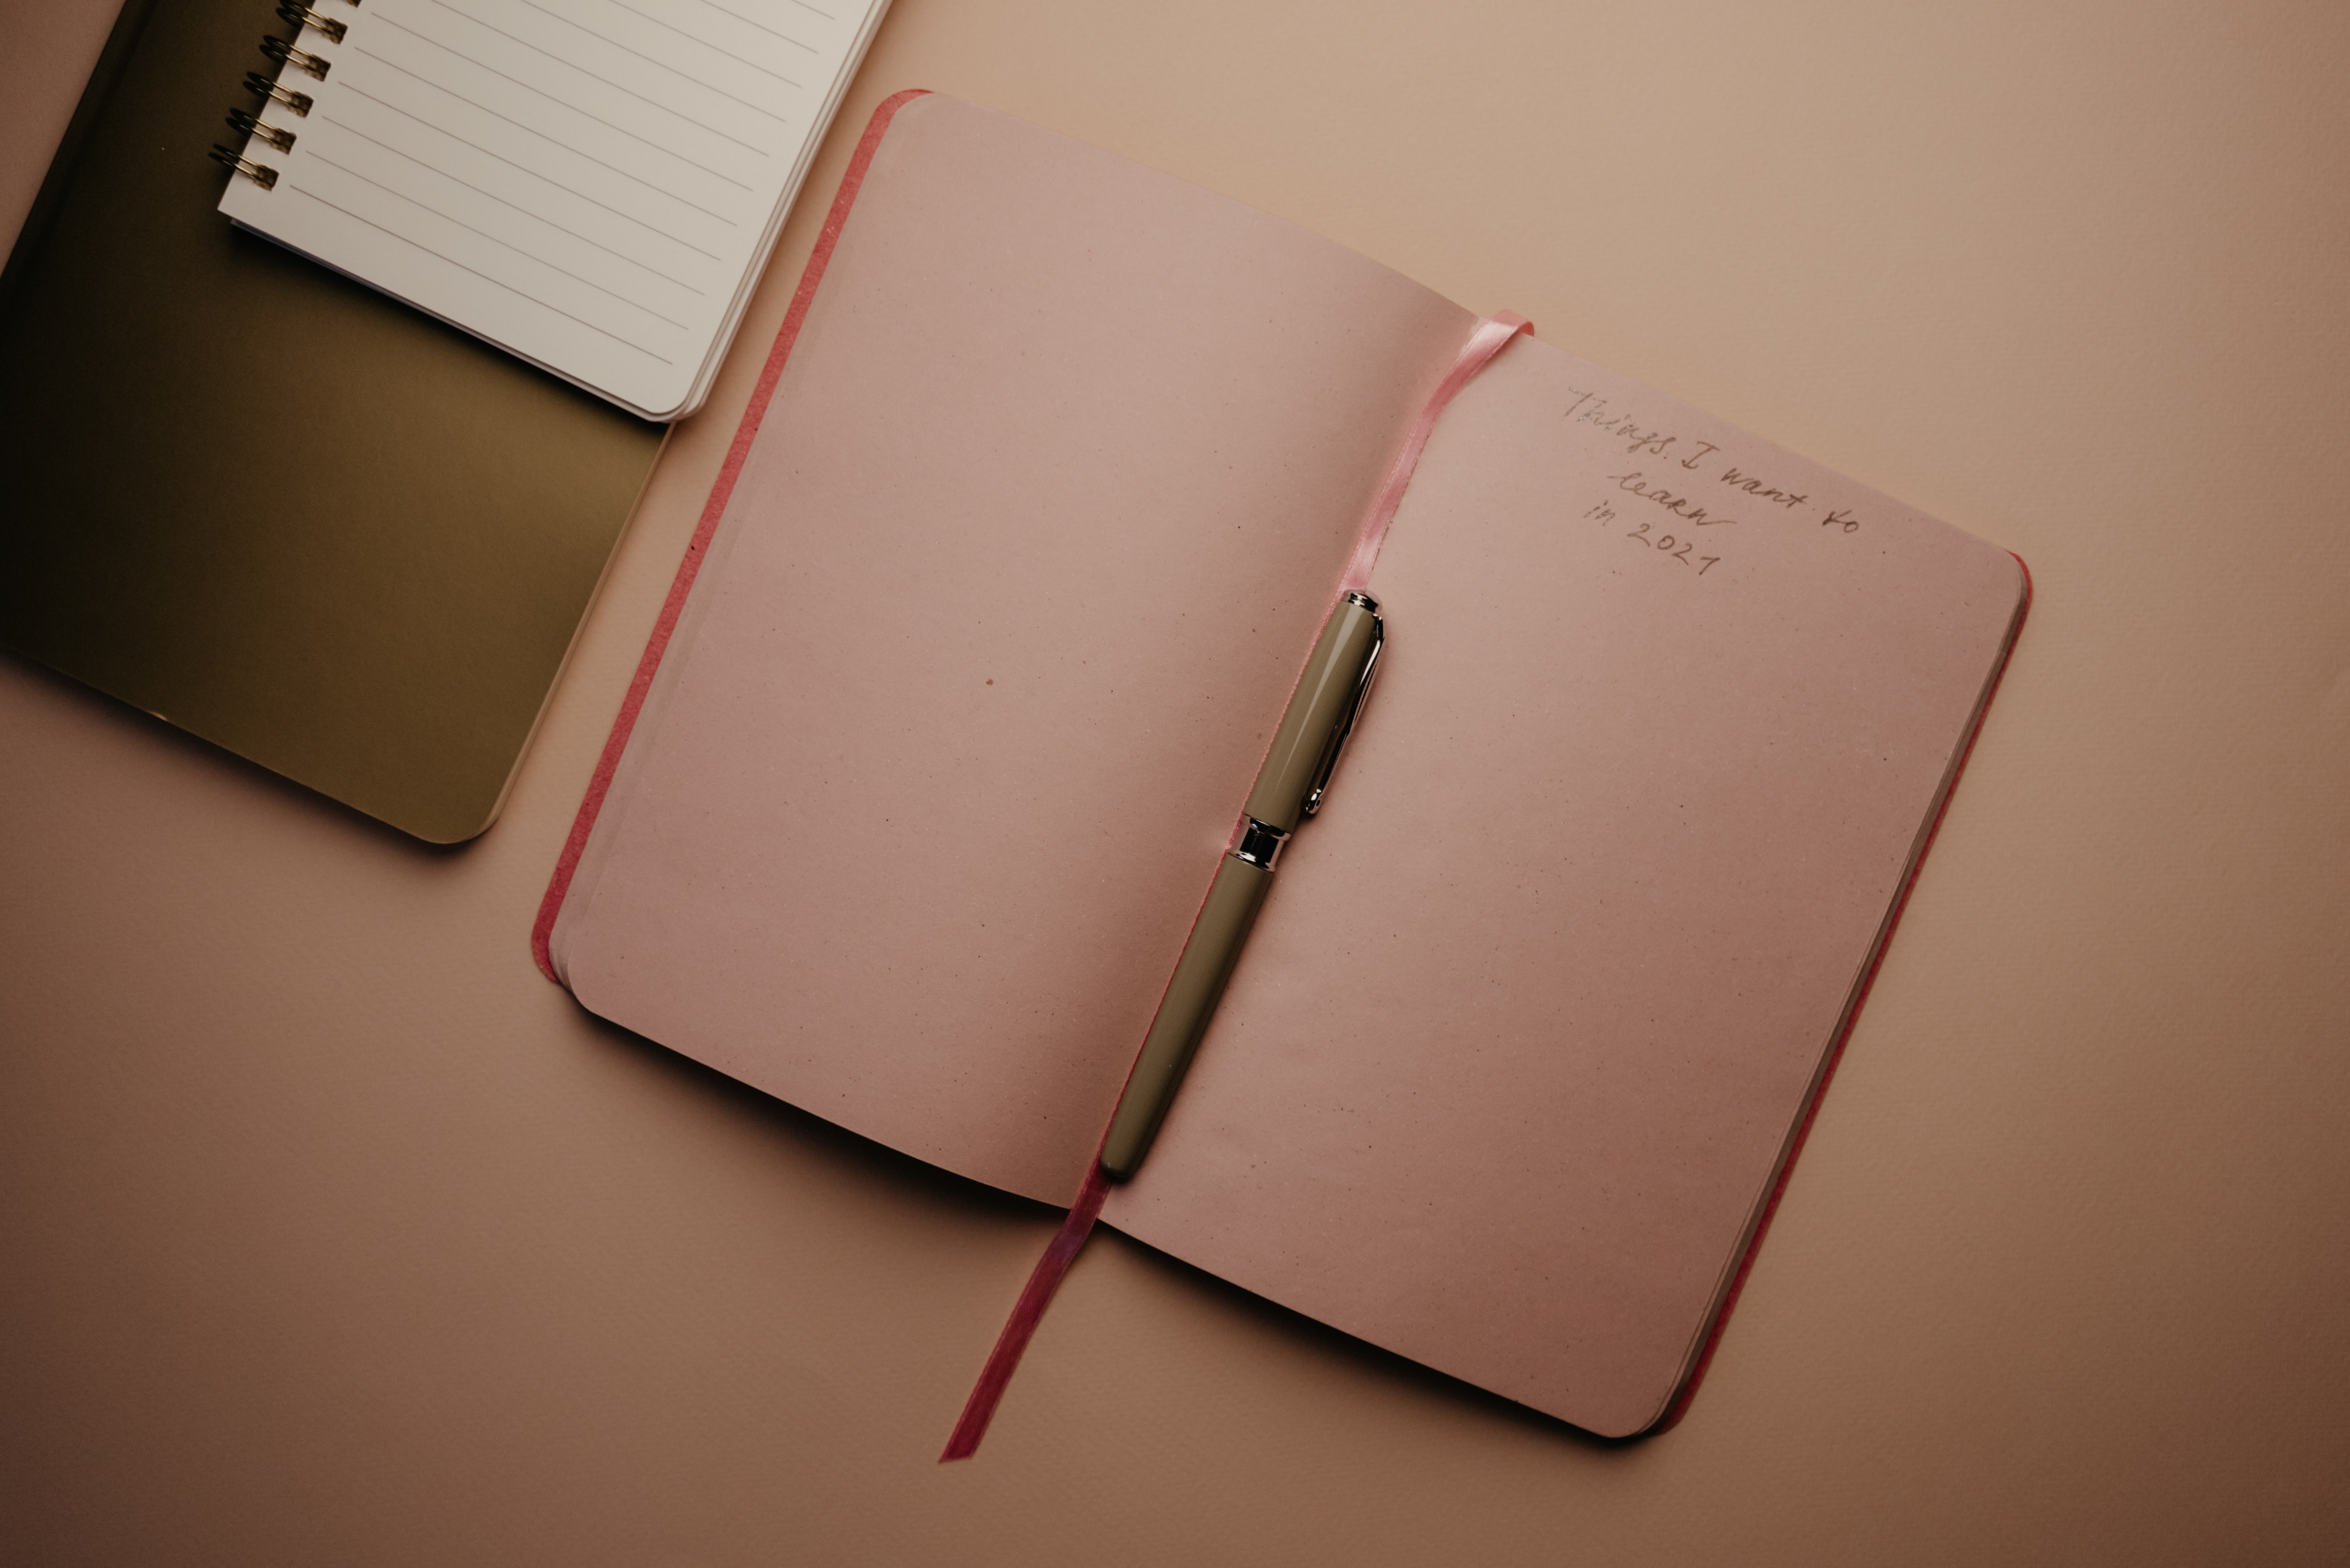 Things I want to
learn
in 2021